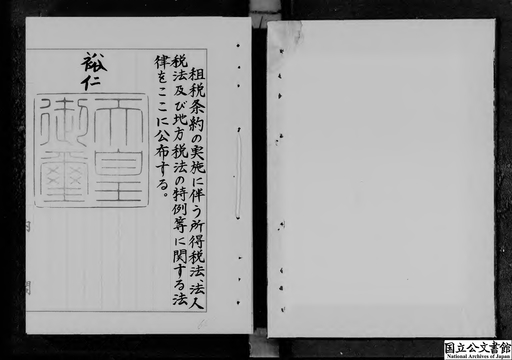 租税条約の実施に伴う所得税法、法人
税法及び地方税法の特例等に関する法
律をここに公布する。
裕仁
天皇
御璽
国立公文書館
National Archives of Japan